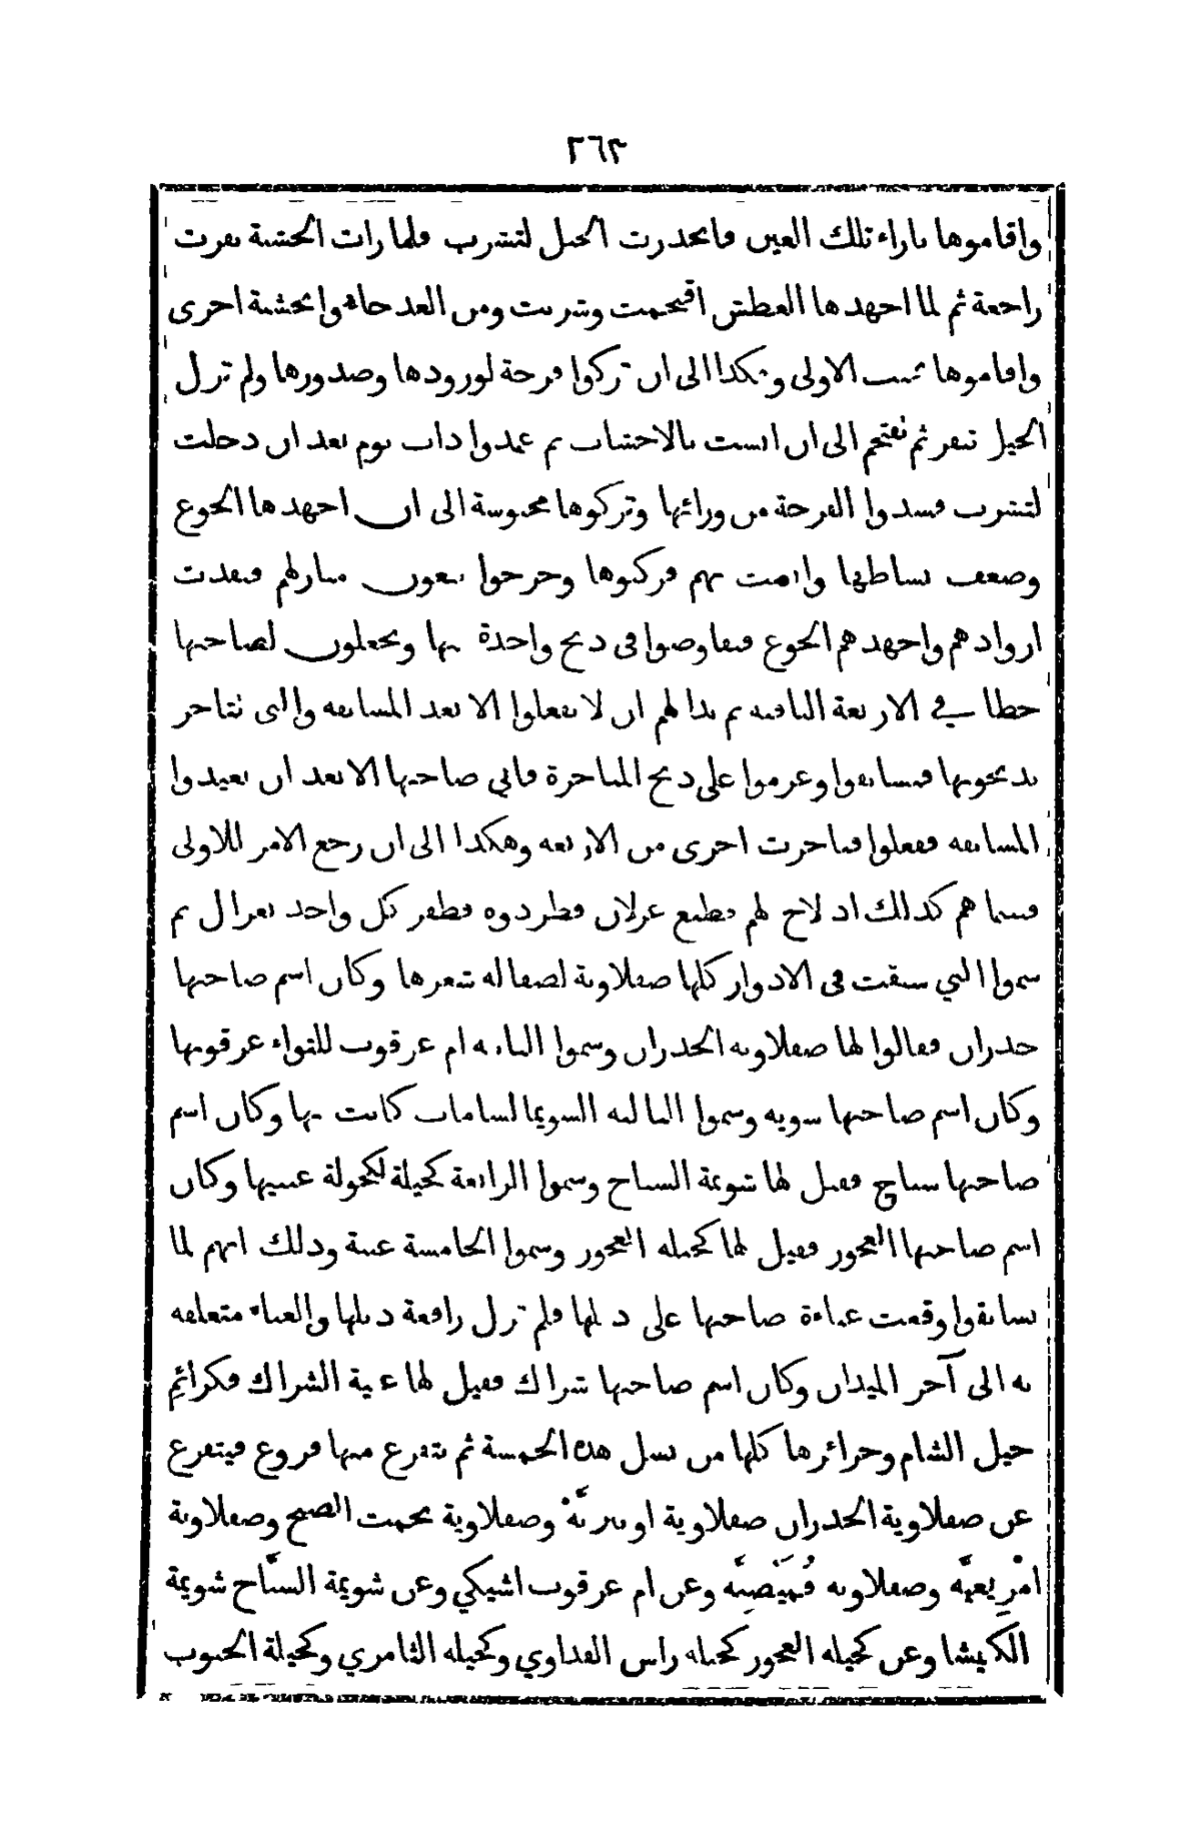 ٢٦٢
واقاموها بازاء تلك العين فانحدرت الخيل لتشرب فلما رات الخشبة نفرت
راجعة ثم لما اجهدها العطش اقتحمت وشربت ومن الغد جاؤا بخشبة اخرى
واقاموها بجنب الاولى وهكذا الى ان تركوا فرجة لورودها وصدورها ولم تزل
الخيل تنفر ثم تقتحم الى ان انست بالاخشاب ثم عمدوا ذات يوم بعد ان دخلت
لتشرب فسدوا الفرجة من ورائها وتركوها محبوسة الى ان اجهدها الجوع
وضعف نشاطها وانست بهم فركبوها وخرجوا يبغون منازلهم فنفدت
ازوادهم واجهدهم الجوع فتفاوضوا في ذبح واحدة منها ويجعلون لصاحبها
حظا في الاربعة الباقية ثم بدا لهم ان لا يفعلوا الا بعد المسابقه والتي تتاخر
يذبحونها فتسابقوا وعزموا على ذبح المتاخرة فابي صاحبها الا بعد ان يعيدوا
المسابقه ففعلوا فتاخرت اخرى من الاربعه وهكذا الى ان رجع الامر للاولى
فبينما هم كذلك اذ لاح لهم قطيع غزلان فطردوه فظفر كل واحد بغزال ثم
سموا التي سبقت في الادوار كلها صقلاوية لصقالة شعرها وكان اسم صاحبها
جدران فقالوا لها صقلاويه الجدران وسموا الثانيه ام عرقوب للتواء عرقوبها
وكان اسم صاحبها شويه وسموا الثالثه الشويما لشامات كانت بها وكان اسم
صاحبها سباح فقيل لها شويمة السباح وسموا الرابعة كحيلة لكحولة عينيها وكان
اسم صاحبها العجوز فقيل لها كحيله العجوز وسموا الخامسة عبية وذلك انهم لما
تسابقوا وقعت عباءة صاحبها على ذيلها فلم تزل رافعة ذيلها والعباء متعلقه
به الى آخر الميدان وكان اسم صاحبها شراك فقيل لها عبية الشراك فكرائم
خيل الشام وحرائرها كلها من نسل هذه الخمسة ثم يتفرع منها فروع فيتفرع
عن صقلاوية الجدران صقلاوية اوبيريّة وصقلاوية نجمت الصبح وصقلاوية
امْرِيغيَّه وصقلاويه قُمَيْصِيَّه وعن ام عرقوب اشيكي وعن شويمة السبّاح شويمة
الكبيشا وعن كحيله العجوز كحيله راس الفداوي وكحيله الثامري وكحيلة الجنوب